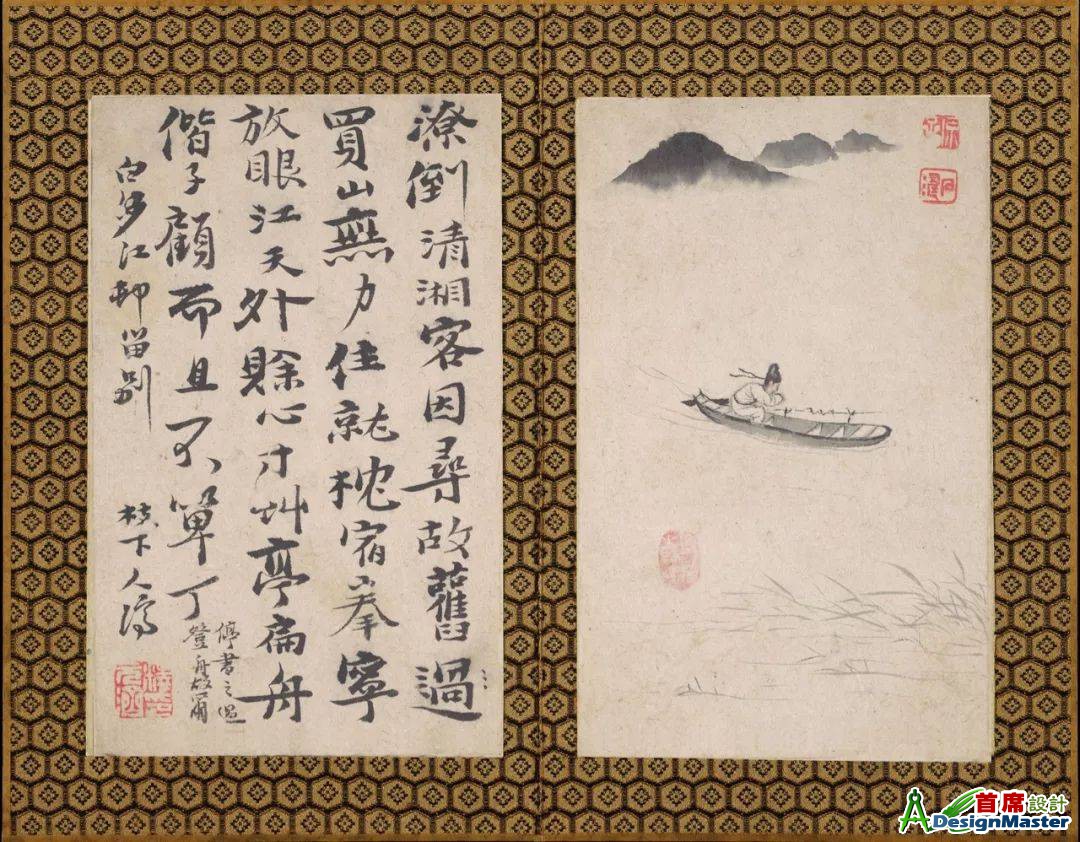 潦倒清湘客因尋故舊過
買山無力住就枕宿拳寧
放眼江天外賖心寸艸亭扁舟
偕子顧而且不單丁
停書之過
登舟故爾
白沙江邨留別
枝下人濟
首席設計
DesignMaster